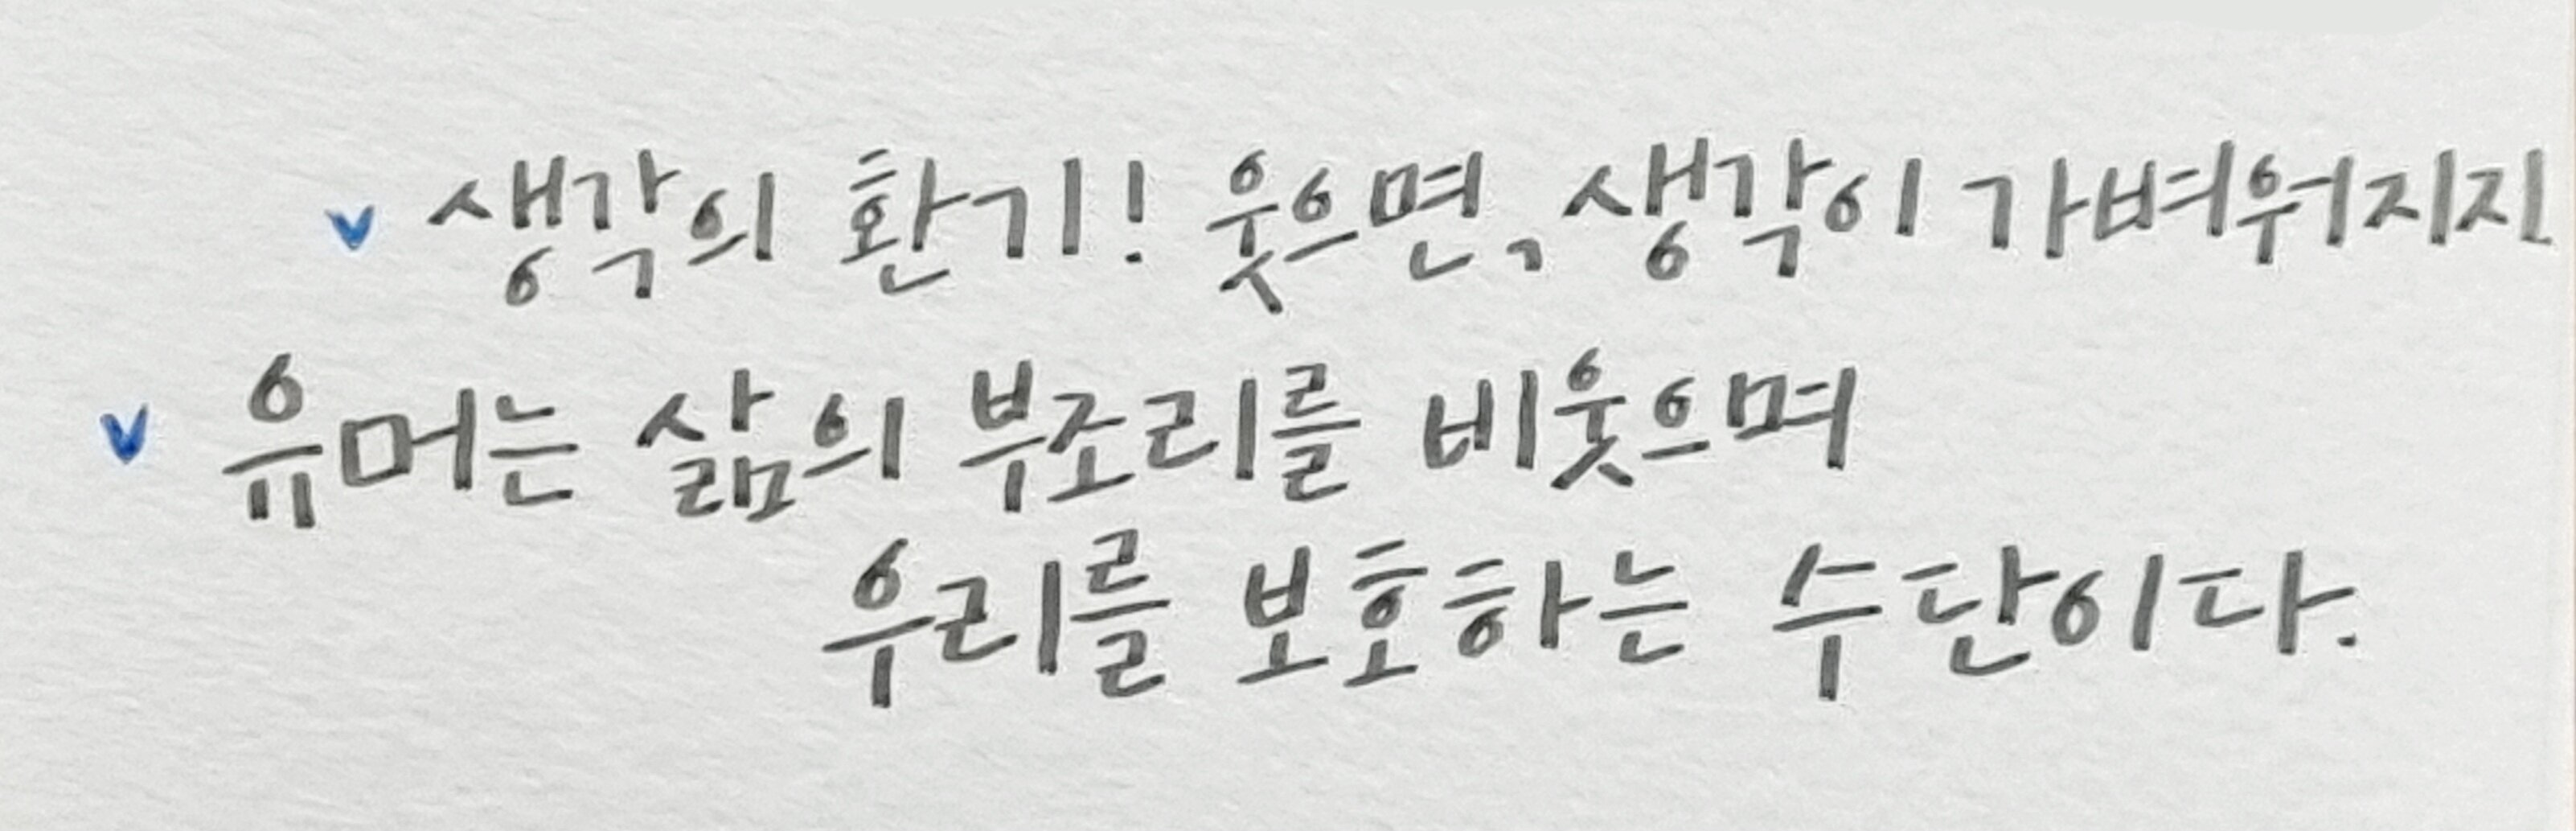 v 생각의 환기! 웃으면, 생각이 가벼워지지
v 유머는 삶의 부조리를 비웃으며
우리를 보호하는 수단이다.